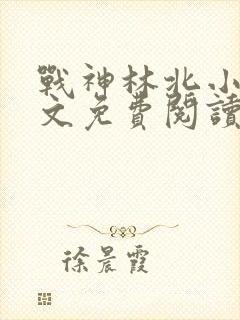 戰神林北小
文免費閱讀
徐晨霞